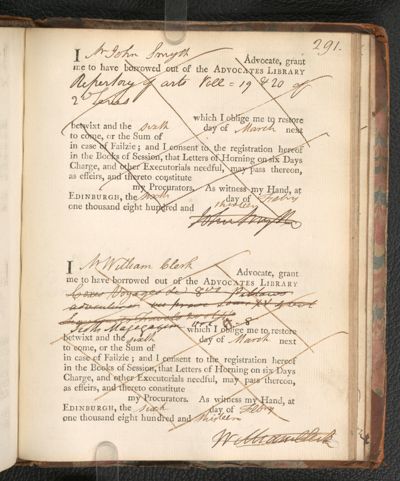 291.
I Mr John Smyth Advocate, grant
me to have borrowed out of the ADVOCATES LIBRARY
Repertory of arts Vols 19 & 20 of
2d Series
which I oblige me to restore
betwixt and the sixth day of March next
to come, or the Sum of
in case of Failzie; and I consent to the registration hereof
in the Books of Session, that Letters of Horning on six Days
Charge, and other Executorials needful, may pass thereon,
as effeirs, and thereto constitute
my Procurators. As witness my Hand, at
EDINBURGH, the sixth day of Febry
one thousand eight hundred and thirteen
John Smyth
I Mr William Clerk Advocate, grant
me to have borrowed out of the ADVOCATES LIBRARY
Coxes Voyages 8vo
Magazine which I oblige me to restore
betwixt and the sixth day of March next
to come, or the Sum of
in case of Failzie; and I consent to the registration hereof
in the Books of Session, that Letters of Horning on six Days
Charge, and other Executorials needful, may pass thereon,
as effeirs, and thereto constitute
my Procurators. As witness my Hand, at
EDINBURGH, the sixth day of Febry
one thousand eight hundred and thirteen
William Clerk